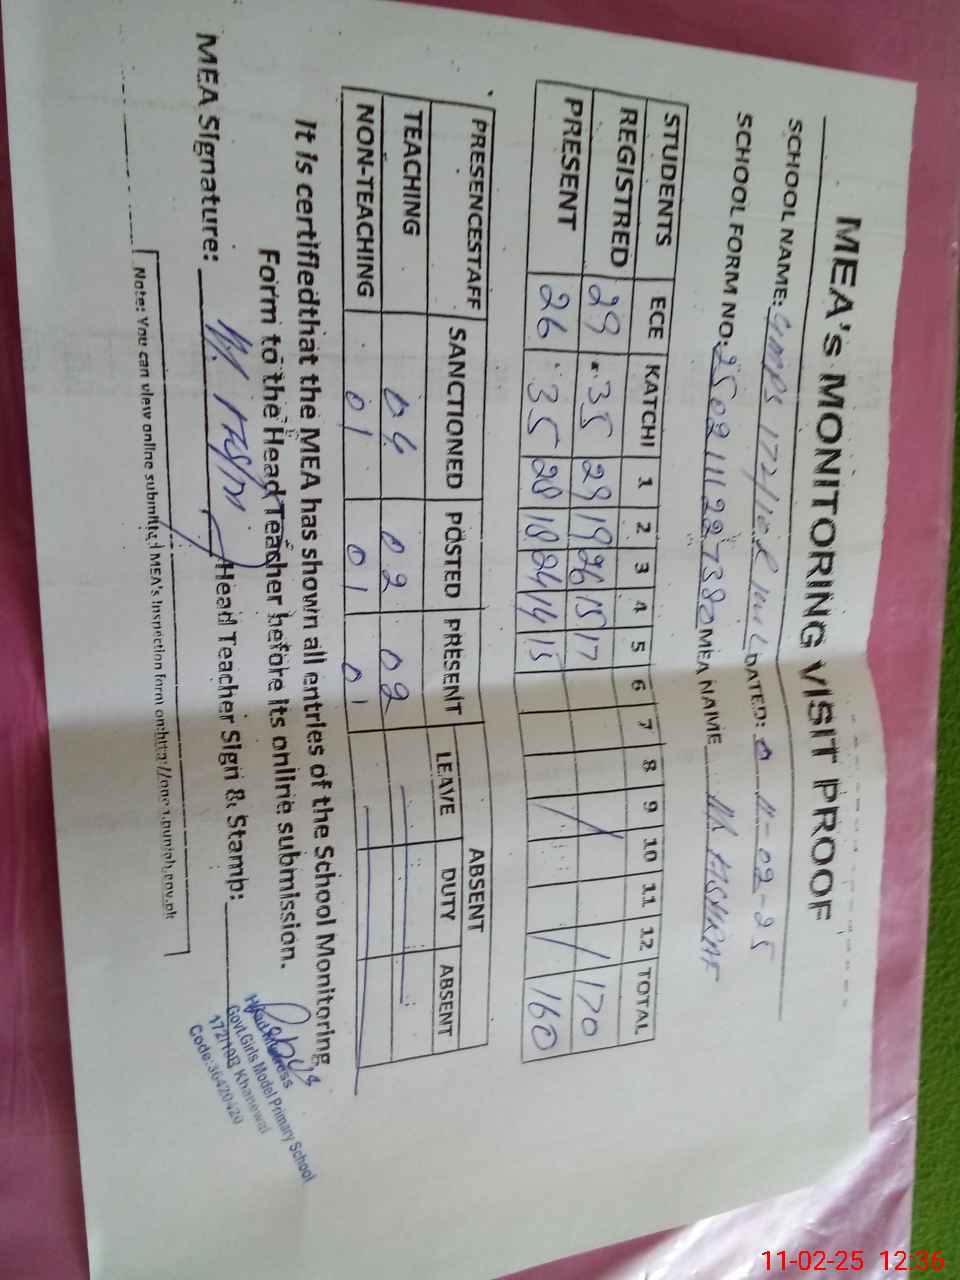 MEA'S MONITORING VISIT PROOF
SCHOOL NAME: GMPS 172/10R DATED: 11-02-25
SCHOOL FORM NO: 2502111227380 MEA NAME M. ASHRAF
STUDENTS ECE KATCHI 1 2 3 4 5 6 7 8 9 10 11 12 TOTAL
REGISTRED 29 35 29 19 26 15 17 170
PRESENT 26 35 28 18 24 14 15 160
PRESENCESTAFF SANCTIONED POSTED PRESENT ABSENT
LEAVE DUTY ABSENT
TEACHING 04 02 02
NON-TEACHING 01 01 01
It is certifiedthat the MEA has shown all entries of the School Monitoring
Form to the Head Teacher before its online submission.
MEA Signature: Head Teacher Sign & Stamp:
Headmistress
Govt.Girls Model Primary School
172/10R Khanewal
Code:36420420
Note: You can view online submitted MEA's Inspection form on:
11-02-25 12:36